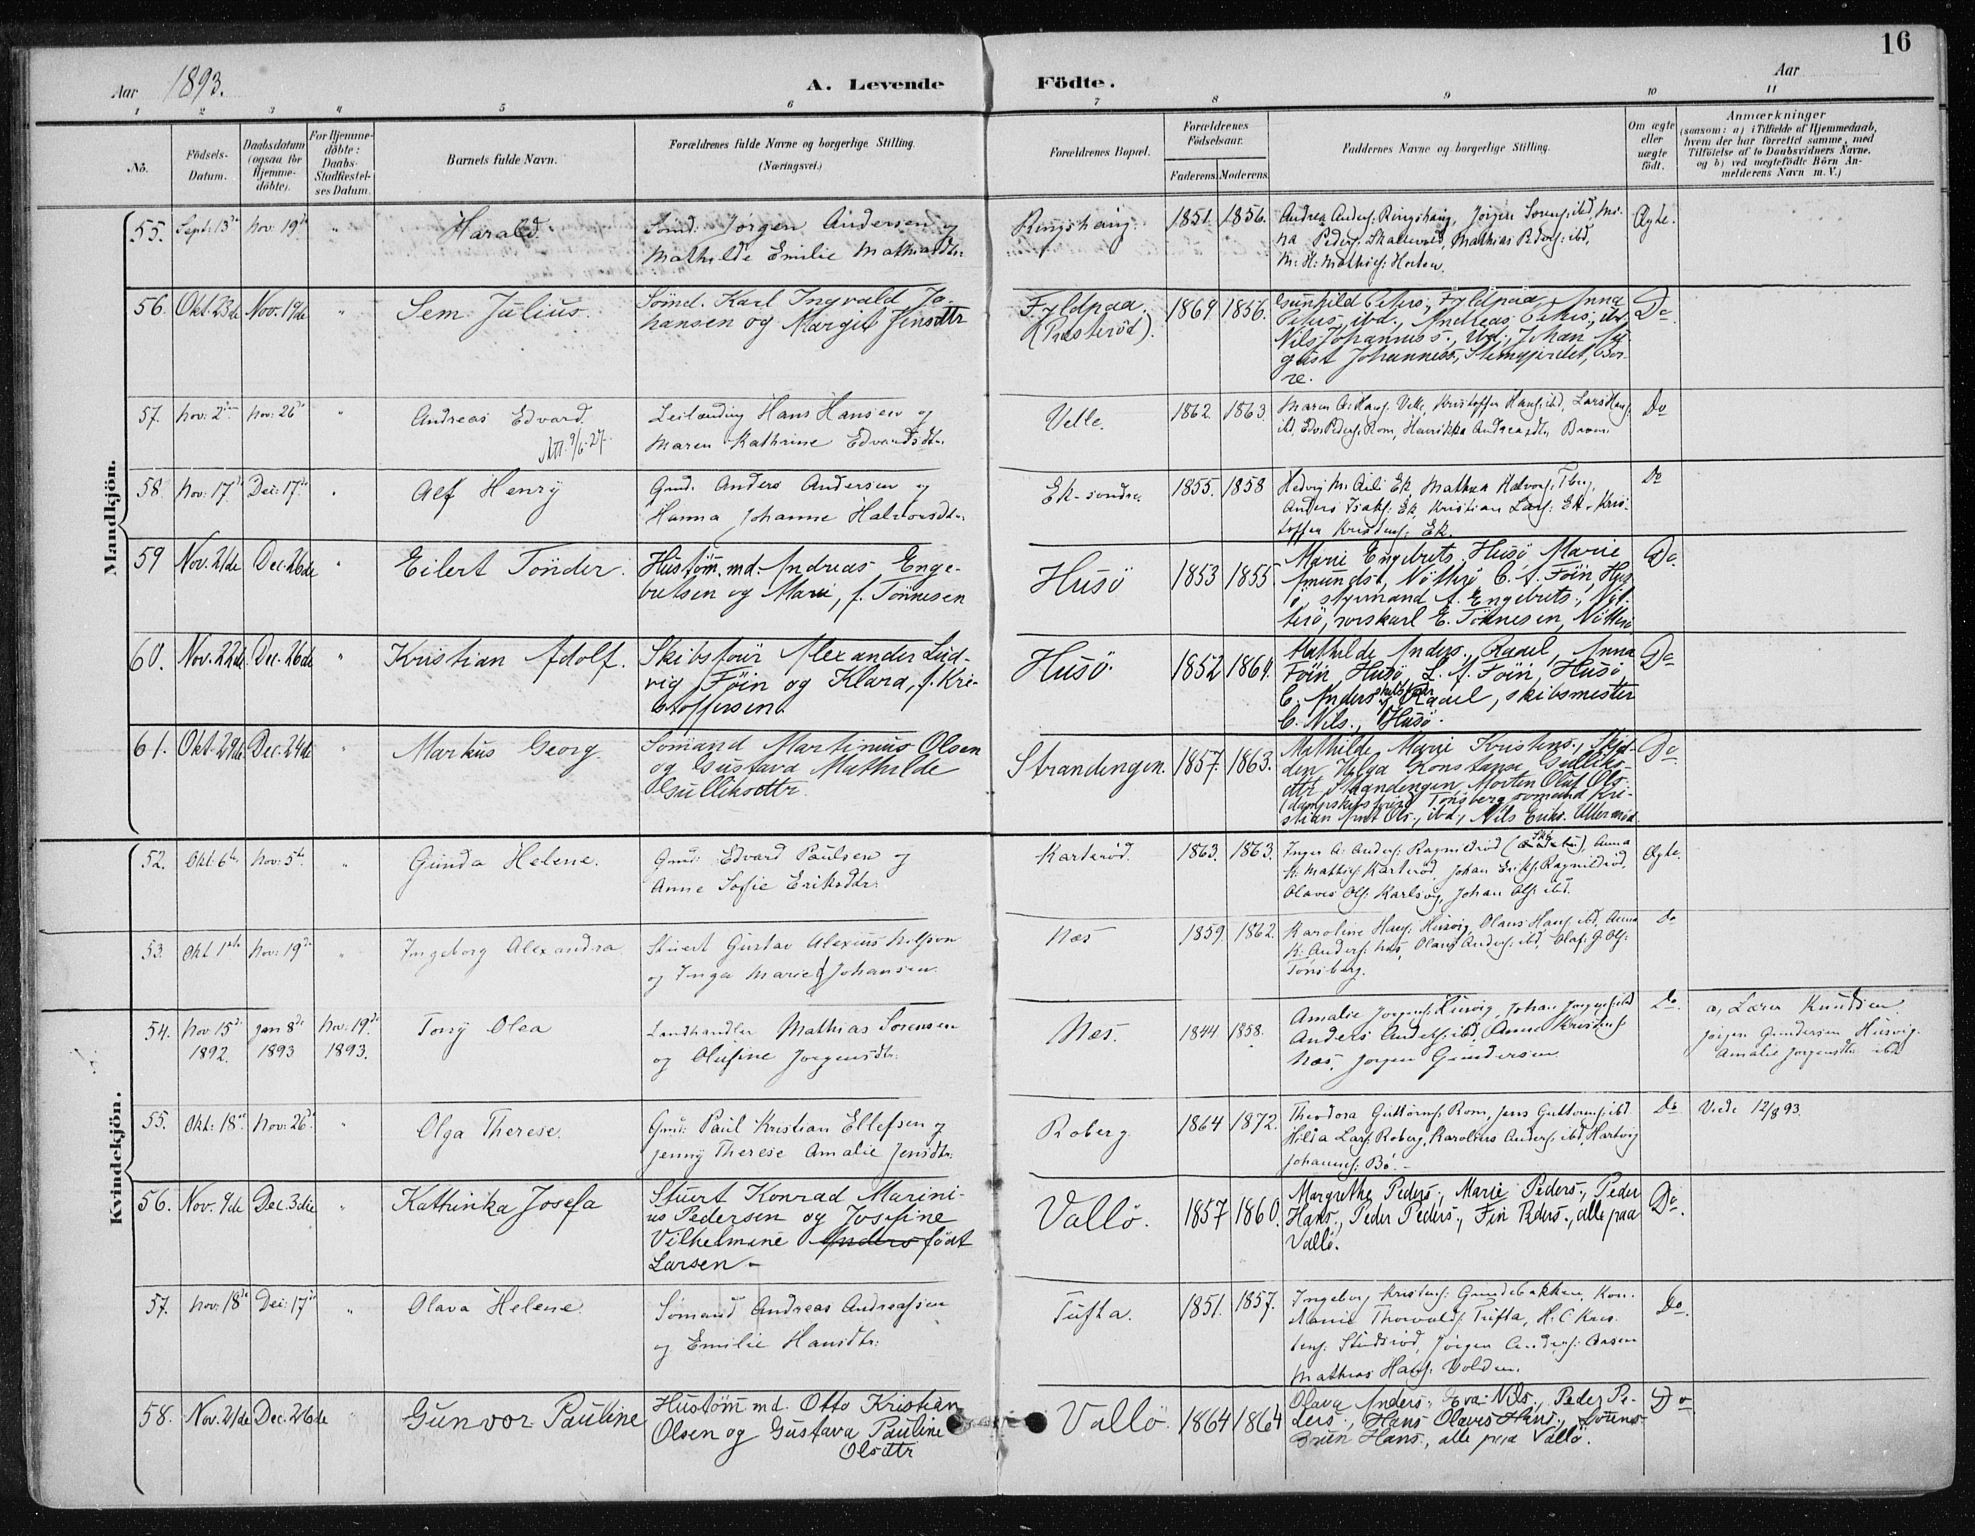 16
Aar 1893.
A. Levende Födte.
Aar
1 2 3 4 5 6 7 8 9 10 11
No.
Födsels-
Datum.
Daabsdatum
(ogsaa for
Hjemme-
döbte).
For Hjemme-
döbte:
Daabs-
Stadfæstel-
ses Datum.
Barnets fulde Navn.
Forældrenes fulde Navne og borgerlige Stilling.
(Næringsvei.)
Forældrenes Bopæl.
Forældrenes
Födselsaar.
Faderens. Moderens.
Faddernes Navne og borgerlige Stilling.
Om ægte
eller
uægte
födt.
Anmærkninger
(saasom: a) i Tilfælde af Hjemmedaab,
hvem der har forrettet samme, med
Tilföielse af to Daabsvidners Navne,
og b) ved uægtefödte Börn An-
melderens Navn m. V.)
Mandkjön.
55. Sept: 13de Nov: 19de " Harald.
Sömd: Jörgen Andersen og
Mathilde Emilie Mathiasdtr:
Ringshaug. 1851. 1856.
Andrea Anders: Ringshaug, Jörgen Sörens: ibd, Mi-
na Peders: Skallevold, Mathias Peders: ibd,
M: H: Mathis: Horten.
Ægte.
56. Okt. 23de Nov. 19de " Sem Julius.
Sömd. Karl Ingvald Jo-
hansen og Margit Jensdtr
Fyldpaa.
(Presteröd).
1869 1856.
Gunhild Peters., Fyldpaa, Anna
Peters., ibd., Andreas Peters., ibd
Nils Johanness., ibd., Johan Au-
gust Johanness., Bor-
re.
Do
57. Nov: 2den Nov: 26de " Andreas Edvard.
Att. 9/6-27.
Leilænding Hans Hansen og
Maren Kathrine Edvardsdtr:
Velle. 1862. 1863.
Maren A: Hans: Velle, Kristoffer Hans: ibd, Lars Hans:
ibd, Edv. Peders: Rom, Henrikka Andreasdtr,
Do
58. Nov: 17de Dec: 17de " Alf Henry
Gmd. Anders Andersen og
Hanna Johanne Halvorsdtr:
Ek-söndre 1855. 1858
Hedvig M: Ek, Mathea Halvors:
Anders Isaks: Ek, Kristian Lars: Ek, Kris-
toffer Kristens: Ek.
Do
59 Nov. 21de Dec. 26de " Eilert Tönder.
Hustöm. md. Andreas Enge-
bretsen og Marie, f. Tönnesen
Husö 1853 1855
Marie Engebrets., Husö Marie
Amunds., Nötterö C. A. Föin, Hus-
ö, styrmand A. Engebrets., Nöt-
terö, E. Tönnesen, Nötterö
Do.
60. Nov. 22de Dec. 26de " Kristian Adolf.
Skibsförer Alexander Lud-
vig Föin og Klara, f. Kri-
stoffersen.
Husö. 1852 1864.
Mathilde Anders., Ragel, Anna
Föin, Husö, L. A. Föin, Husö,
C. Anders., Ragel, skibsmester
C. Nils., Husö.
Do
61. Okt. 29de Dec. 24de " Markus Georg.
Sömand Martinius Olsen
og Gustava Mathilde
Gulliksdtr.
Strandengen. 1857. 1863.
Mathilde Marie Kristens.,
Helga Konstanse Gulliks-
dtr, Strandengen, Morten Olaf Ols.
Tönsberg, sömand Kri-
stian Ols., ibd., Nils Eriks.
Do.
Kvindekjön.
52. Okt: 6te Nov: 5te " Gunda Helene.
Gmd: Edvard Paulsen og
Anne Sofie Eriksdtr:
Karteröd. 1863. 1863.
Inger A: Anders: Ragnildröd Anna
H: Mathis: Karteröd, Johan Eriks: Ragnildröd,
Olaves Ols: Karlsvig, Johan Ols: ibd.
Ægte.
53. Okt 1ste Nov: 19de " Ingeborg Alexandra
Stuert Gustav Alexius Nilsson
og Inga Marie Johansen.
Næs 1859. 1862.
Karoline Hans: Husvig, Olaus Hans: ibd, Anna
K: Anders: Næs, Olaus Anders: ibd, Olaf G Ols:
Tönsberg.
Do
54. Nov 15de
1892.
Jan 8de
1893
Nov: 19de
1893.
Tony Olea
Landhandler Mathias Sörensen
og Olufine Jörgensdtr:
Næs. 1844 1858.
Amalie Jörgens: Husvig, Johan Jörgens: ibd
Anders Anders: ibd, Anne Kristens:
Næs, Jörgen Gundersen
Do
a, Lærer Knudsen
Jörgen Gundersen Husvig.
Amalie Jörgensdtr ibd
55. Okt: 18de Nov: 26de " Olga Therese.
Gmd: Paul Kristian Ellefsen og
Jenny Therese Amalie Jensdtr:
Roberg. 1864 1872.
Theodora Guttorms: Rom, Jens Guttorms: ibd
Hilda Lars: Roberg, Karolius Anders: ibd, Hartvig
Johanns: Bö.-
Do. Viede 12/8 93.
56. Nov. 9de Dec. 3die " Kathinka Josefa
Stuert Konrad Marini-
us Pedersen og Josefine
Vilhelmine Anders født
Larsen.
Vallö. 1857 1860.
Margrethe Peders., Marie Peders., Peder
Hans., Peder Peders., Fin Peders., alle paa
Vallö.
Do.
57. Nov: 18de Dec: 17de " Olava Helene.
Sömand Andreas Andreassen
og Emilie Hansdtr:
Tufta. 1851. 1857.
Ingeborg Kristens: Gundebakken, Kon.
Marie Thorvalds: Tufta, H. C. Kris-
tens: Jörgen Anders:
Mathias Hans: Volden.
Do.
58. Nov. 21de Dec. 26de " Gunvor Pauline
Hustöm md. Otto Kristian
Olsen og Gustava Pauline
Olsdtr
Vallö. 1864 1864
Olava Anders., Eva Nils., Peder Pe-
ders., Hans Olaves Hans., Lorens
Brun Hans., alle paa Vallö.
Do